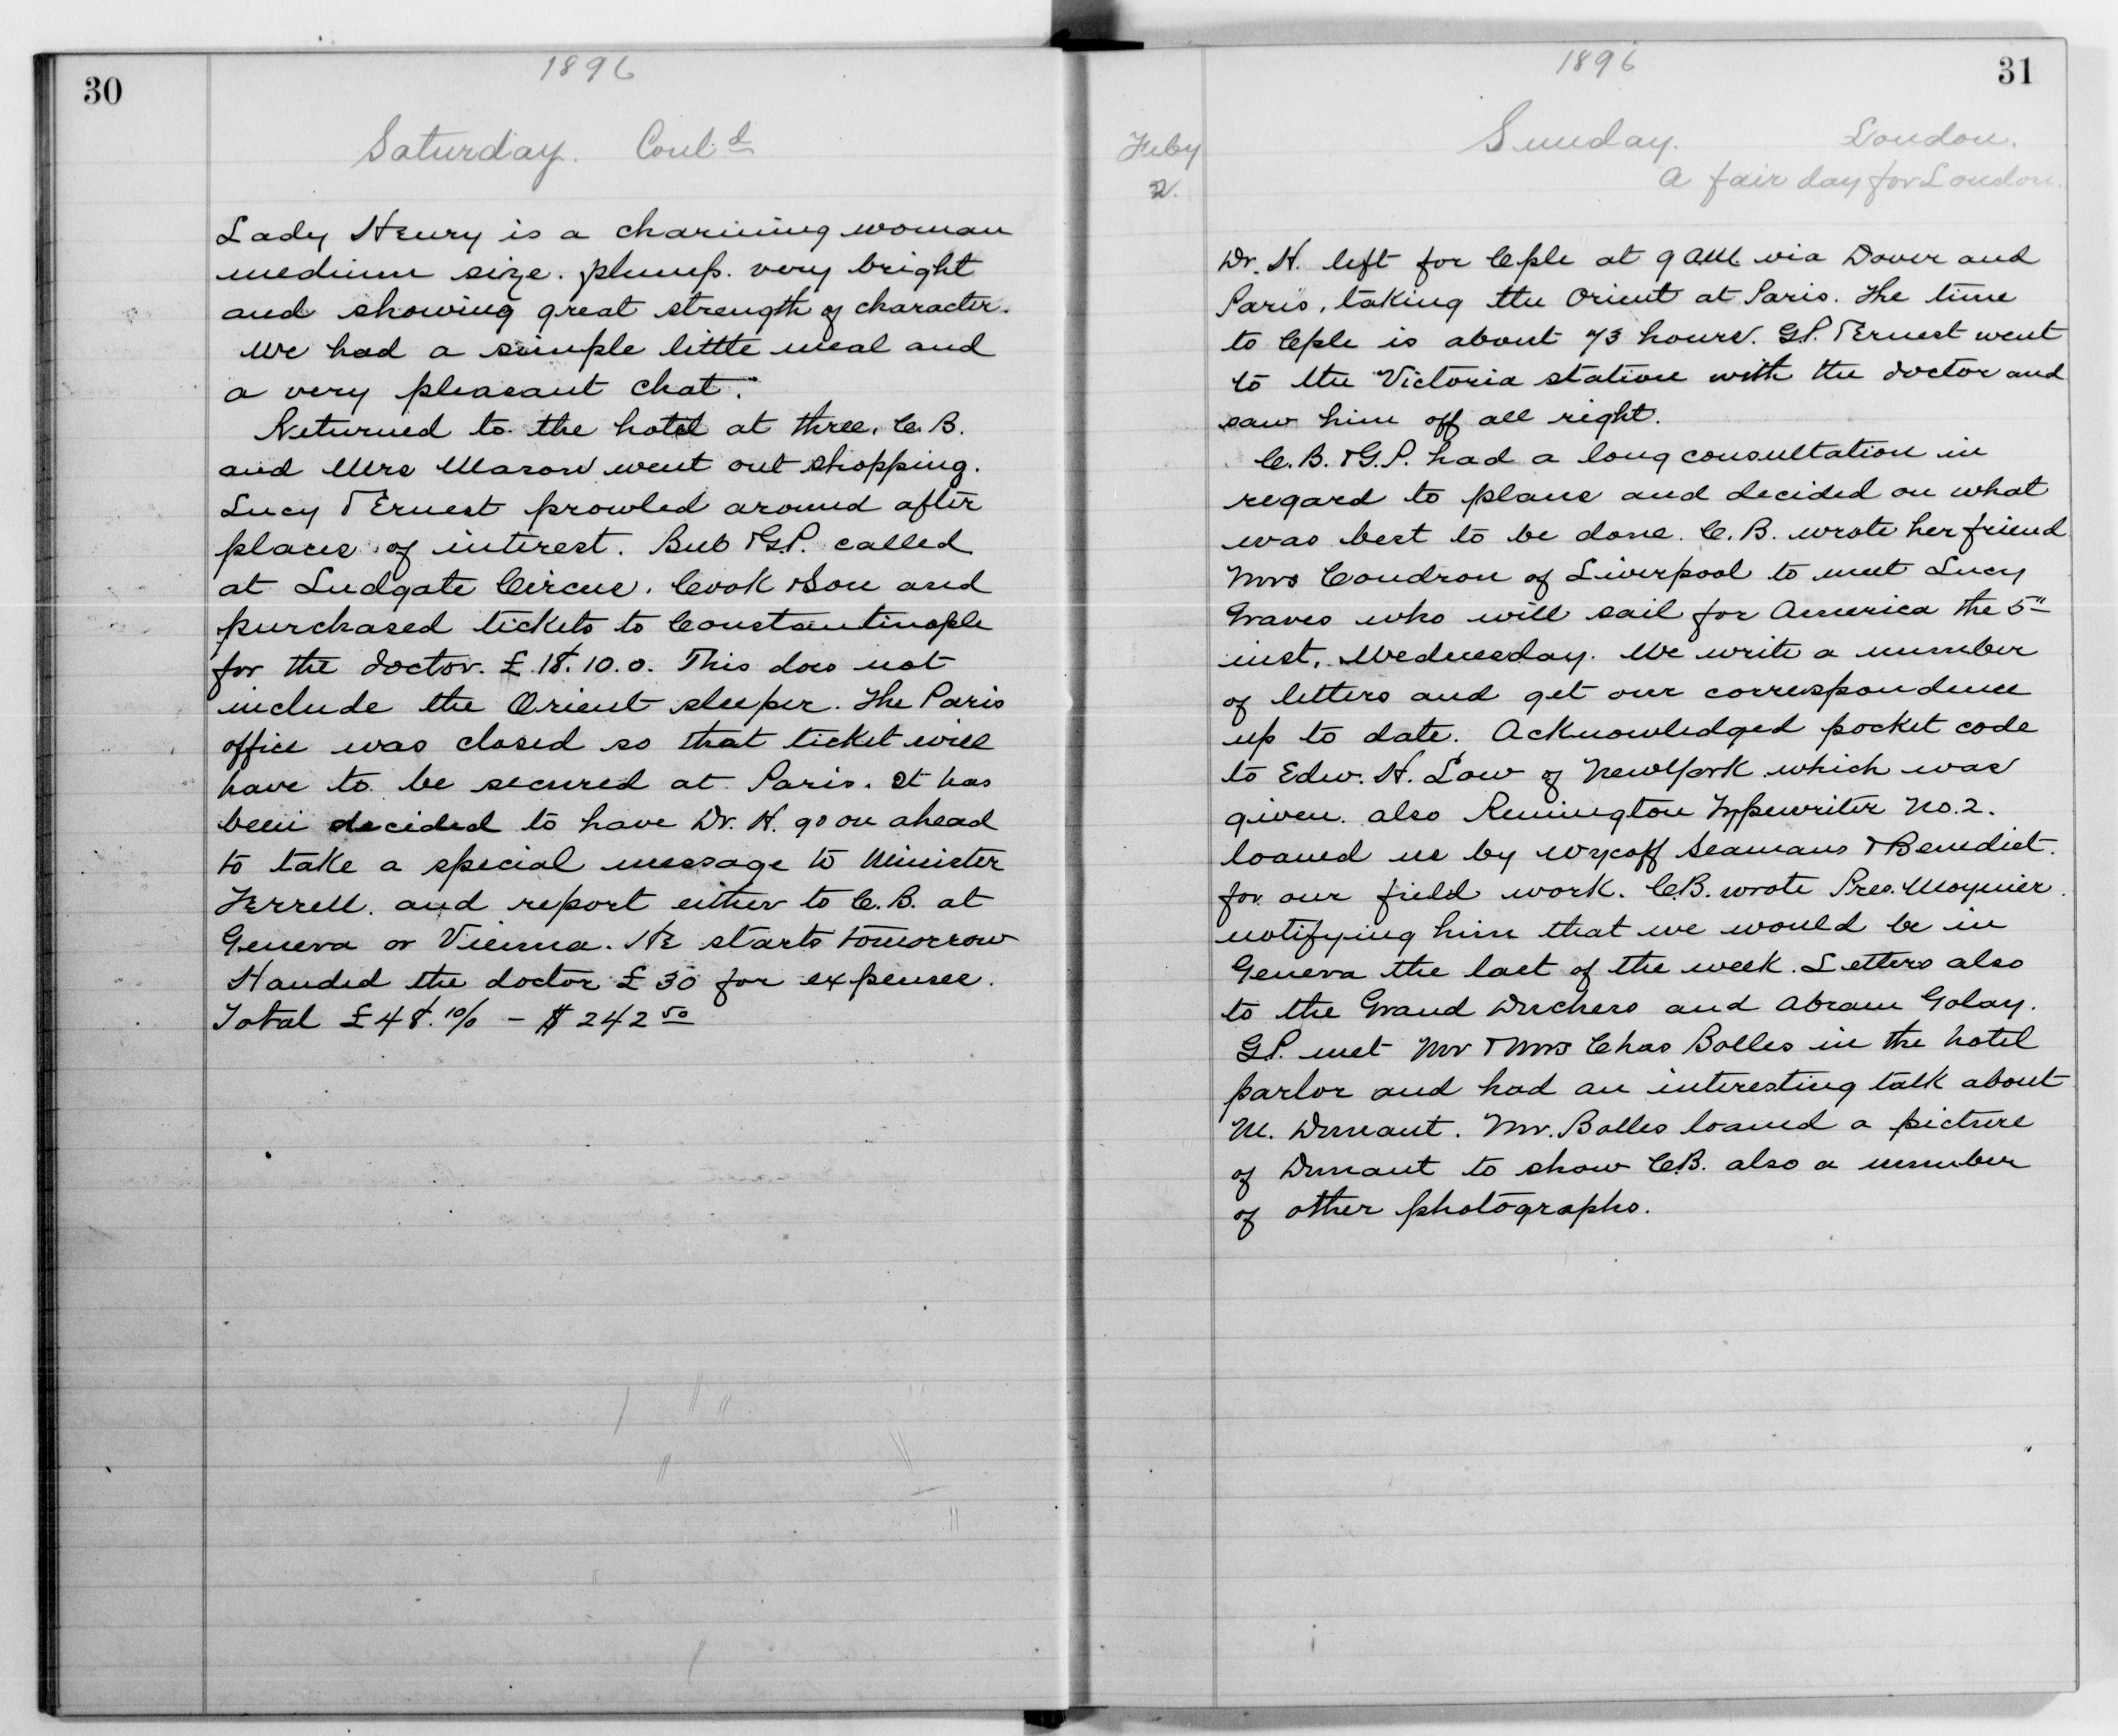 30
1896
Saturday. Cont.d
Lady Henry is a charming woman
medium size. plump. very bright
and showing great strength of character.
We had a simple little meal and
a very pleasant chat.
Returned to the hotel at three. C. B.
and Mrs Mason went out shopping.
Lucy & Ernest prowled around after
places of interest. Bub & G.P. called
at Ludgate Circus. Cook & Son and
purchased tickets to Constantinople
for the doctor. £ 18. 10. 0. This does not
include the Orient sleeper. The Paris
office was closed so that ticket will
have to be secured at Paris. It has
been decided to have Dr. H. go on ahead
to take a special message to Minister
Terrell. and report either to C. B. at
Geneva or Vienna. He starts tomorrow
Handed the doctor £ 30 for expenses.
Total £ 48. 10/0 - $ 242 50
31
1896
Feby
2.
Sunday. London.
A fair day for London.
Dr. H. left for Cple at 9 AM. via Dover and
Paris, taking the Orient at Paris. The time
to Cple is about 73 hours. G.P. & Ernest went
to the Victoria station with the doctor and
saw him off all right.
C. B. & G.P. had a long consultation in
regard to plans and decided on what
was best to be done. C. B. wrote her friend
Mrs Condron of Liverpool to meet Lucy
Graves who will sail for America the 5"
inst. Wednesday. We write a number
of letters and get our correspondence
up to date. Acknowledged pocket code
to Edw. H. Low of New York which was
given. also Remington Typewriter No. 2.
loaned us by Wycoff Seamans & Benedict.
for our field work. C.B. wrote Pres. Moynier.
notifying him that we would be in
Geneva the last of the week. Letters also
to the Grand Duchess and Abram Golay.
G.P. met Mr & Mrs Chas Bolles in the hotel
parlor and had an interesting talk about
M. Dunant. Mr. Bolles loaned a picture
of Dunant to show C.B. also a number
of other photographs.